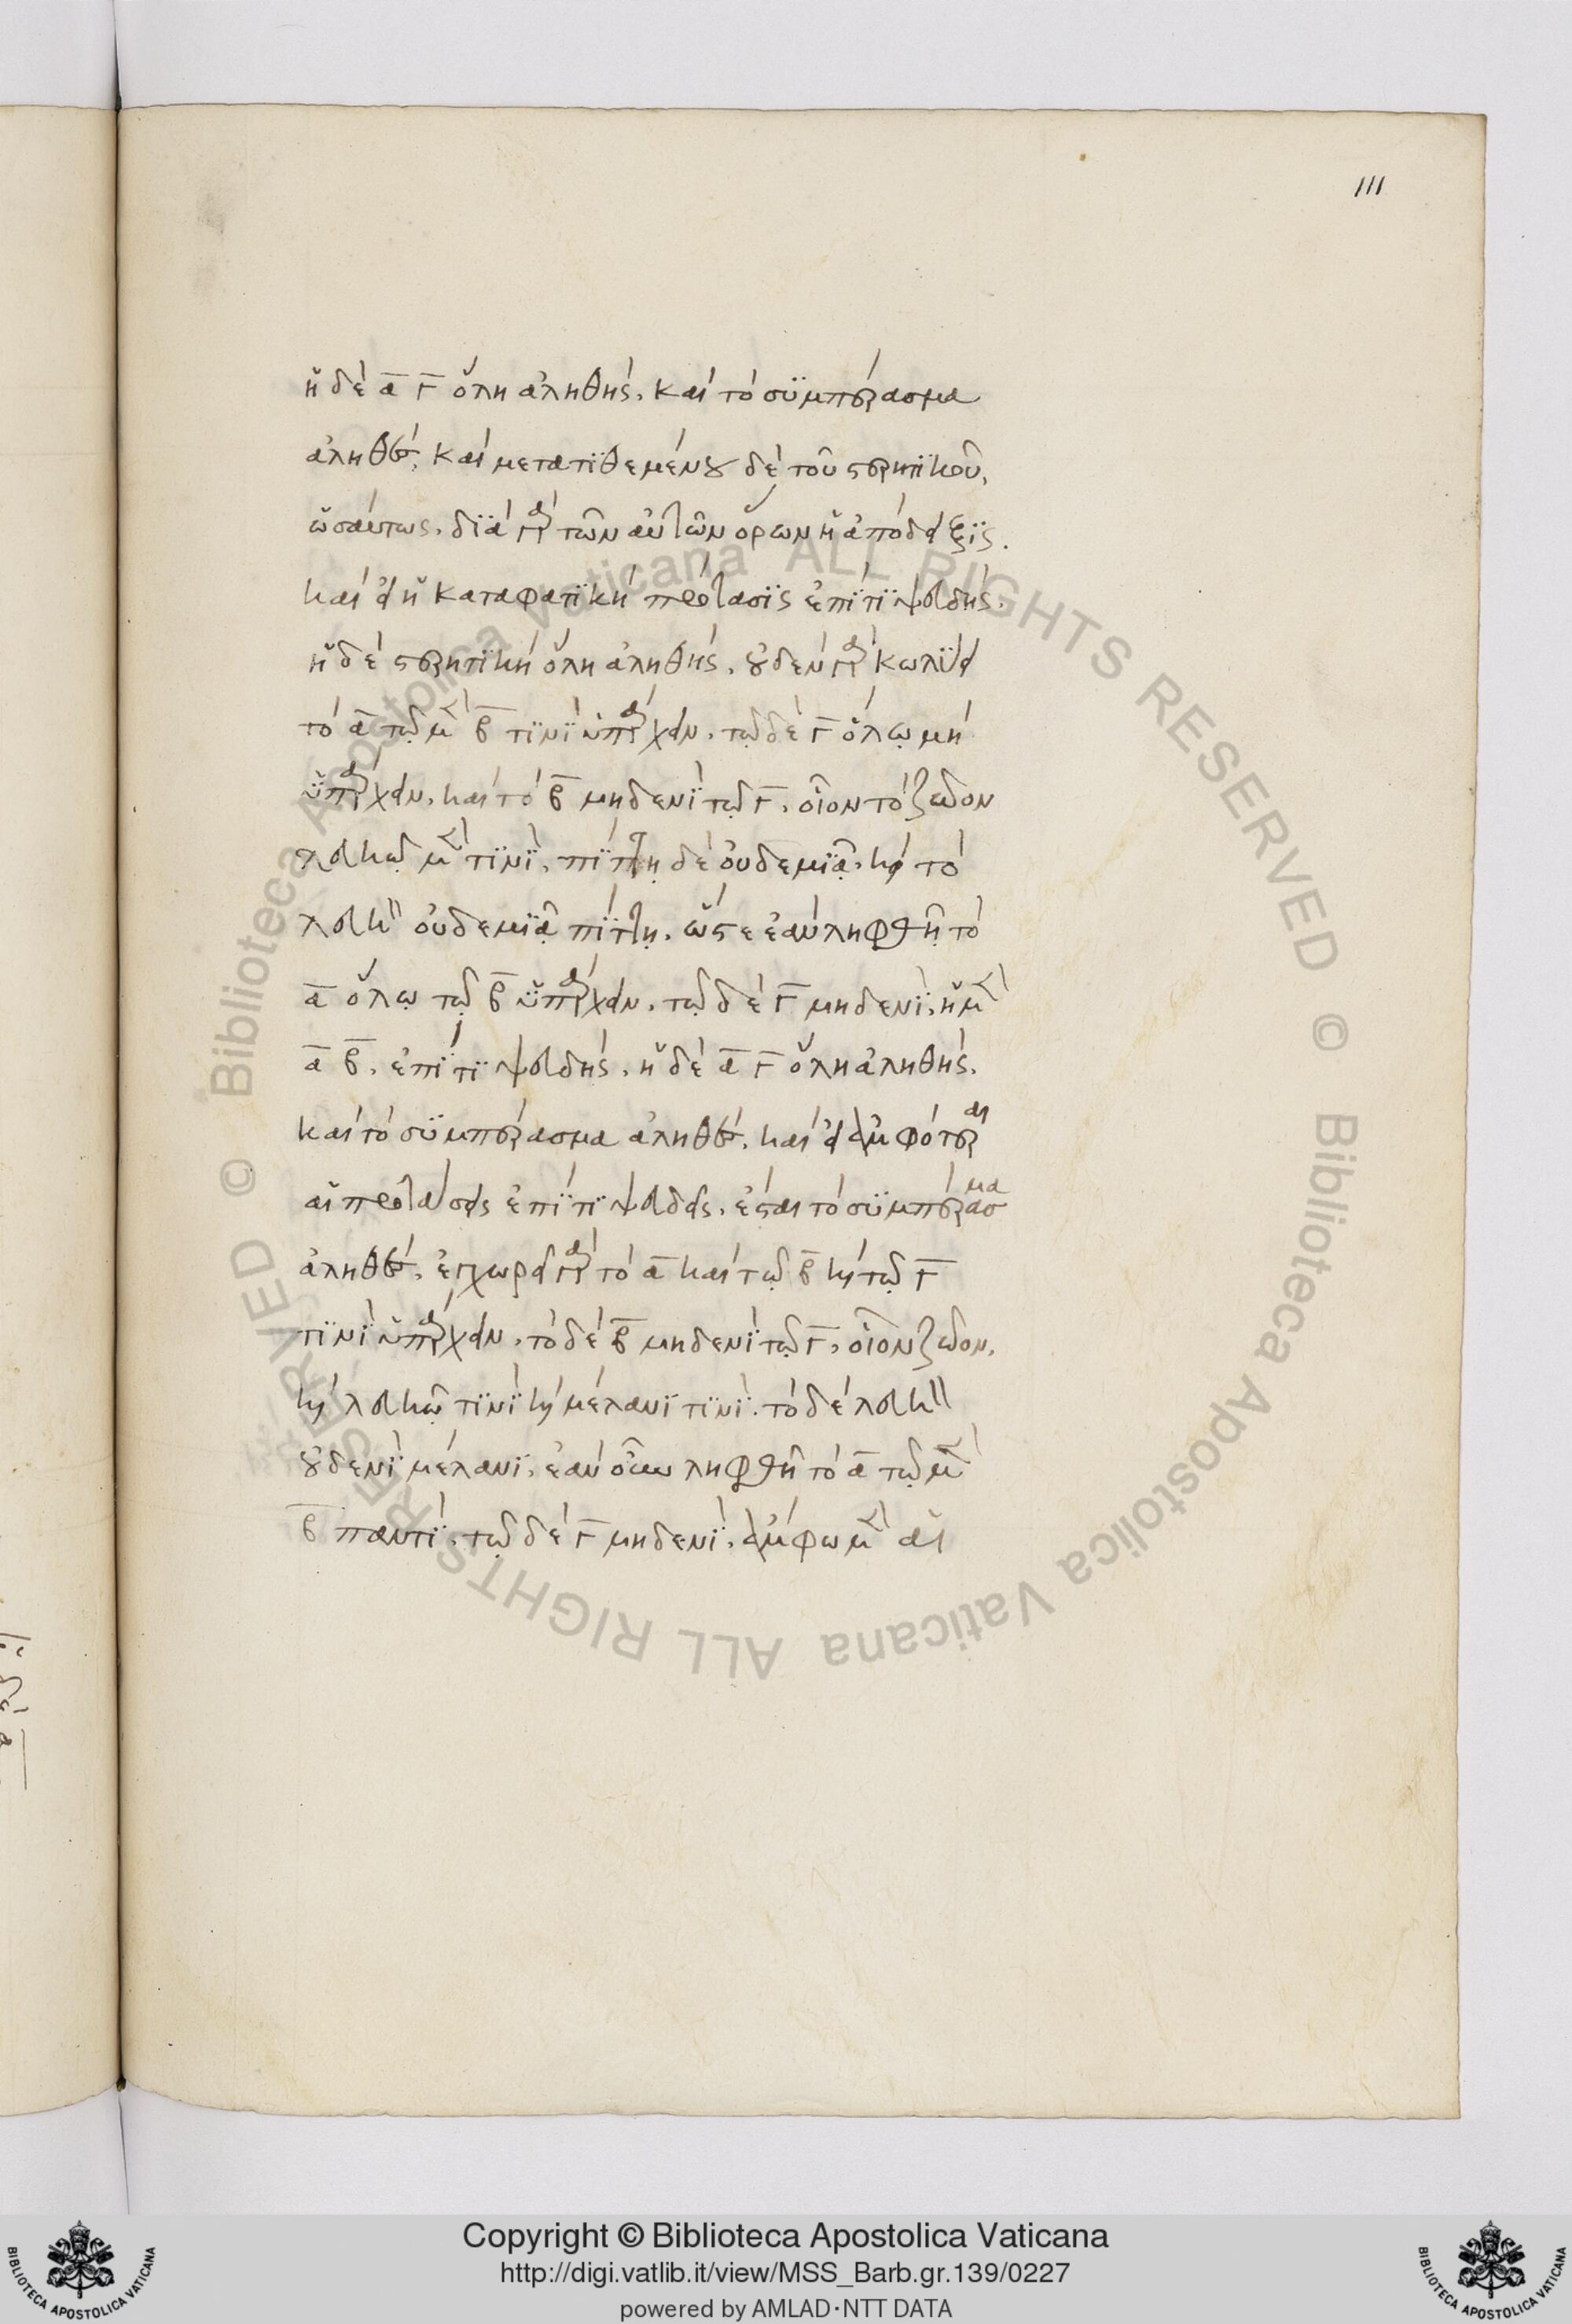 111
ἡ δὲ α̅ γ̅ ὅλη ἀληθής. καὶ τὸ συμπέρασμα
ἀληθές. καὶ μετατιθεμένου δὲ τοῦ στερητικοῦ,
ὡσαύτως. διὰ γὰρ τῶν αὐτῶν ὅρων ἡ ἀπόδειξις.
καὶ εἰ ἡ καταφατικὴ πρότασις ἐπί τι ψευδής.
ἡ δὲ στερητικὴ ὅλη ἀληθής. οὐδὲν γὰρ κωλύει
τὸ α̅ τῷ μὲν β̅ τινὶ ὑπάρχειν. τῷ δὲ γ̅ ὅλῳ μὴ
ὑπάρχειν. καὶ τὸ β̅ μηδενὶ τῷ γ̅. οἷον τὸ ζῷον
λευκῷ μὲν τινί. πίττῃ δὲ οὐδεμιᾷ. καὶ τὸ
λευκὸν οὐδεμιᾷ πίττῃ. ὥστε ἐὰν ληφθῇ τὸ
α̅ ὅλῳ τῷ β̅ ὑπάρχειν. τῷ δὲ γ̅ μηδενί. ἡ μὲν
α̅ β̅. ἐπί τι ψευδής. ἡ δὲ α̅ γ̅ ὅλη ἀληθής.
καὶ τὸ συμπέρασμα ἀληθές. καὶ εἰ ἀμφότεραι
αἱ προτάσεις ἐπί τι ψευδεῖς. ἔσται τὸ συμπέρασμα
ἀληθές. ἐγχωρεῖ γὰρ τὸ α̅ καὶ τῷ β̅ καὶ τῷ γ̅
τινὶ ὑπάρχειν. τὸ δὲ β̅ μηδενὶ τῷ γ̅. οἷον ζῷον.
καὶ λευκῷ τινὶ καὶ μέλανι τινί. τὸ δὲ λευκὸν
οὐδενὶ μέλανι. ἐὰν οὖν ληφθῇ τὸ α̅ τῷ μὲν
β̅ παντί. τῷ δὲ γ̅ μηδενί. ἄμφω μὲν αἱ
© Biblioteca Apostolica Vaticana ALL RIGHTS RESERVED © Biblioteca Apostolica Vaticana ALL RIGHTS RESERVED
Copyright © Biblioteca Apostolica Vaticana
http://digi.vatlib.it/view/MSS_Barb.gr.139/0227
powered by AMLAD·NTT DATA
BIBLIOTECA APOSTOLICA VATICANA
BIBLIOTECA APOSTOLICA VATICANA